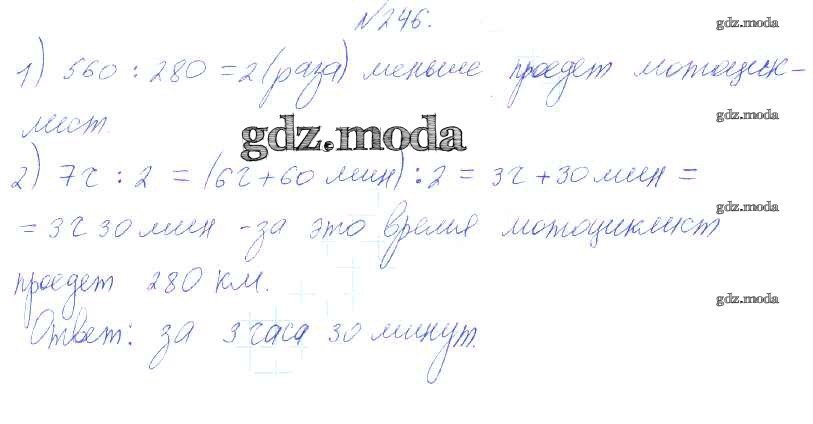 №246.
gdz.moda
1) 560 : 280 = 2 (раза) меньше проедет мотоцик-
gdz.moda
лист.
gdz.moda
2) 7ч : 2 = (6ч + 60 мин) : 2 = 3ч + 30 мин =
gdz.moda
= 3ч 30 мин - за это время мотоциклист
проедет 280 км.
gdz.moda
Ответ: за 3 часа 30 минут.